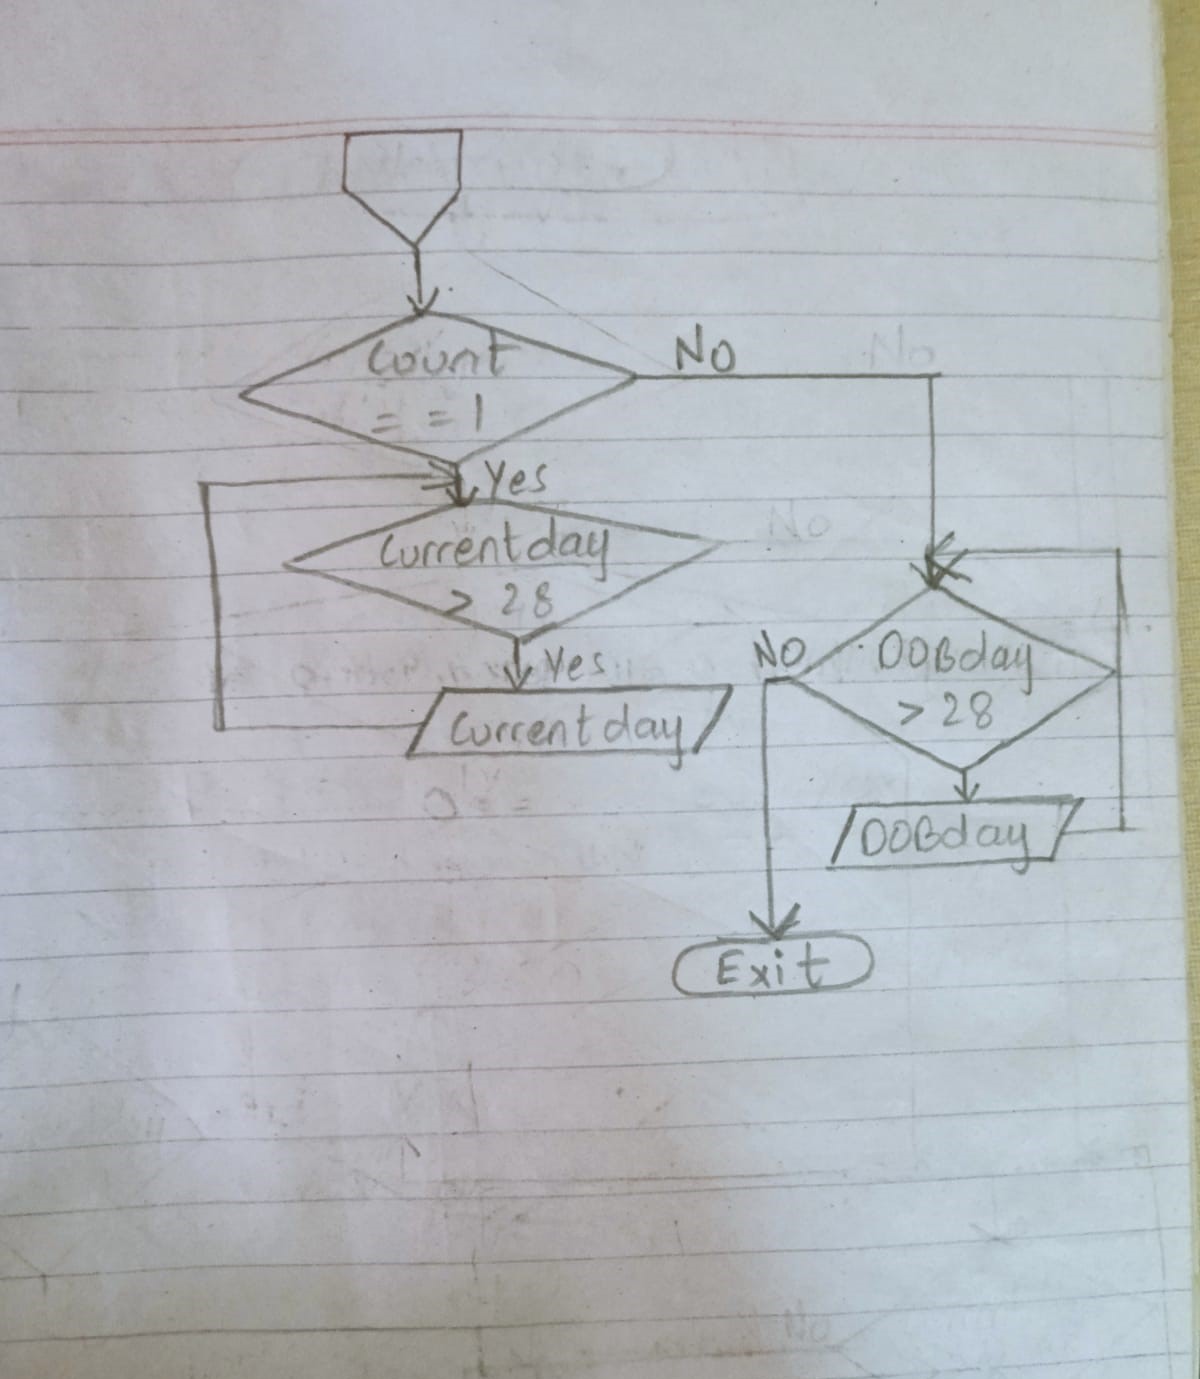 Count
= = 1
No
Yes
Current day
> 28
Yes
Current day
NO
DOBday
> 28
DOBday
Exit